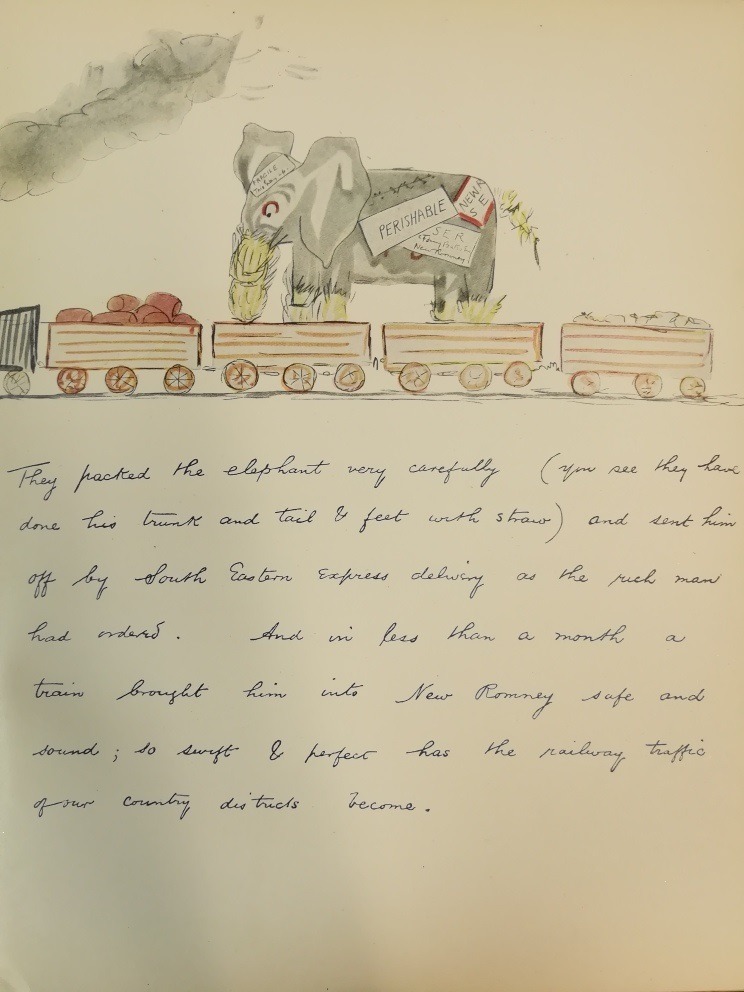 FRAGILE
PERISHABLE
NEWRES
S.E.R.
New Romney
They packed the elephant very carefully (you see they have
done his trunk and tail & feet with straw) and sent him
off by South Eastern Express delivery as the rich man
had ordered. And in less than a month a
train brought him into New Romney safe and
sound; so swift & perfect has the railway traffic
of our country districts become.